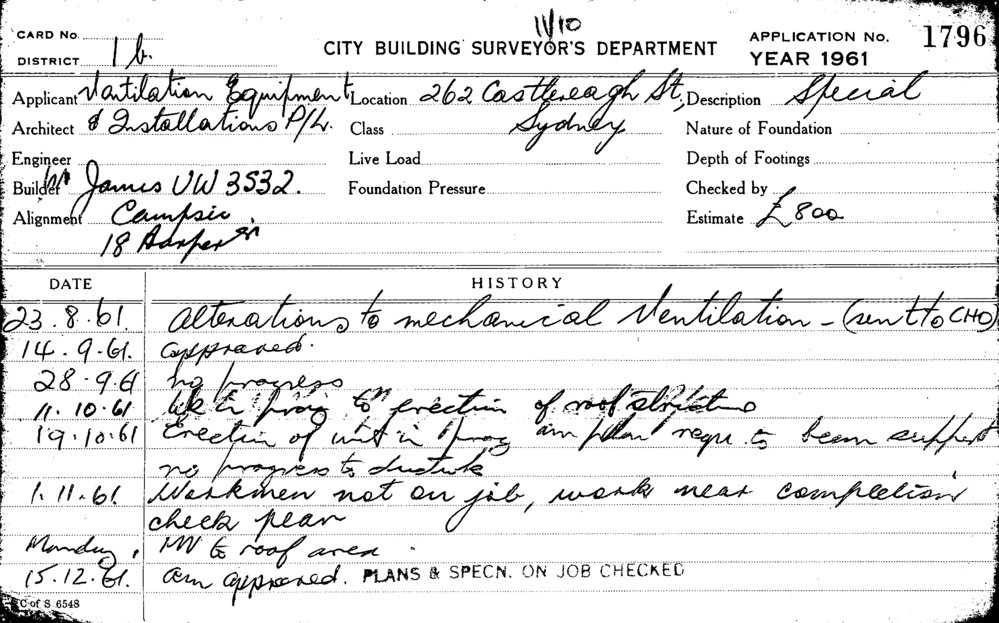 11/10
CARD No. CITY BUILDING SURVEYOR'S DEPARTMENT APPLICATION No. 1796
DISTRICT 1 b. YEAR 1961
Applicant Ventilation Equipment Location 262 Castlereagh St, Description Special
Architect & Installations P/L. Class Sydney Nature of Foundation
Engineer Live Load Depth of Footings
Builder James UW 3532. Foundation Pressure Checked by
Alignment Campsie, Estimate £800
18 Harper St
DATE HISTORY
23.8.61. Alterations to mechanical Ventilation - (sent to CHO)
14.9.61. approved.
28.9.61 no progress
11.10.61 prog to erection of roof structure
19.10.61 Erection of unit in prog am plan requ. to beam support
no progress to ductwk
1.11.61. Workmen not on job, work near completion
check plan
Monday, MV to roof area.
15.12.61. am approved. PLANS & SPECN. ON JOB CHECKED
C of S 6548